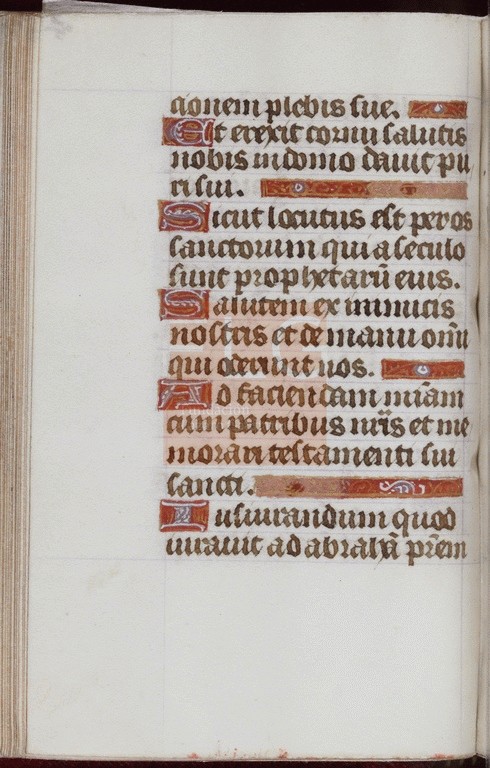 cionem plebis sue.
Et erexit cornu salutis
nobis in domo dauit pu
eri sui.
Sicut locutus est per os
sanctorum qui a seculo
sunt prophetarū eius.
Salutem ex inimicis
nostris et de manu omū
qui oderunt nos.
Ad faciendam miām
cum patribus nr̄is et me
morari testamenti sui
sancti.
Iusiurandum quod
iurauit ad abrahā prēm